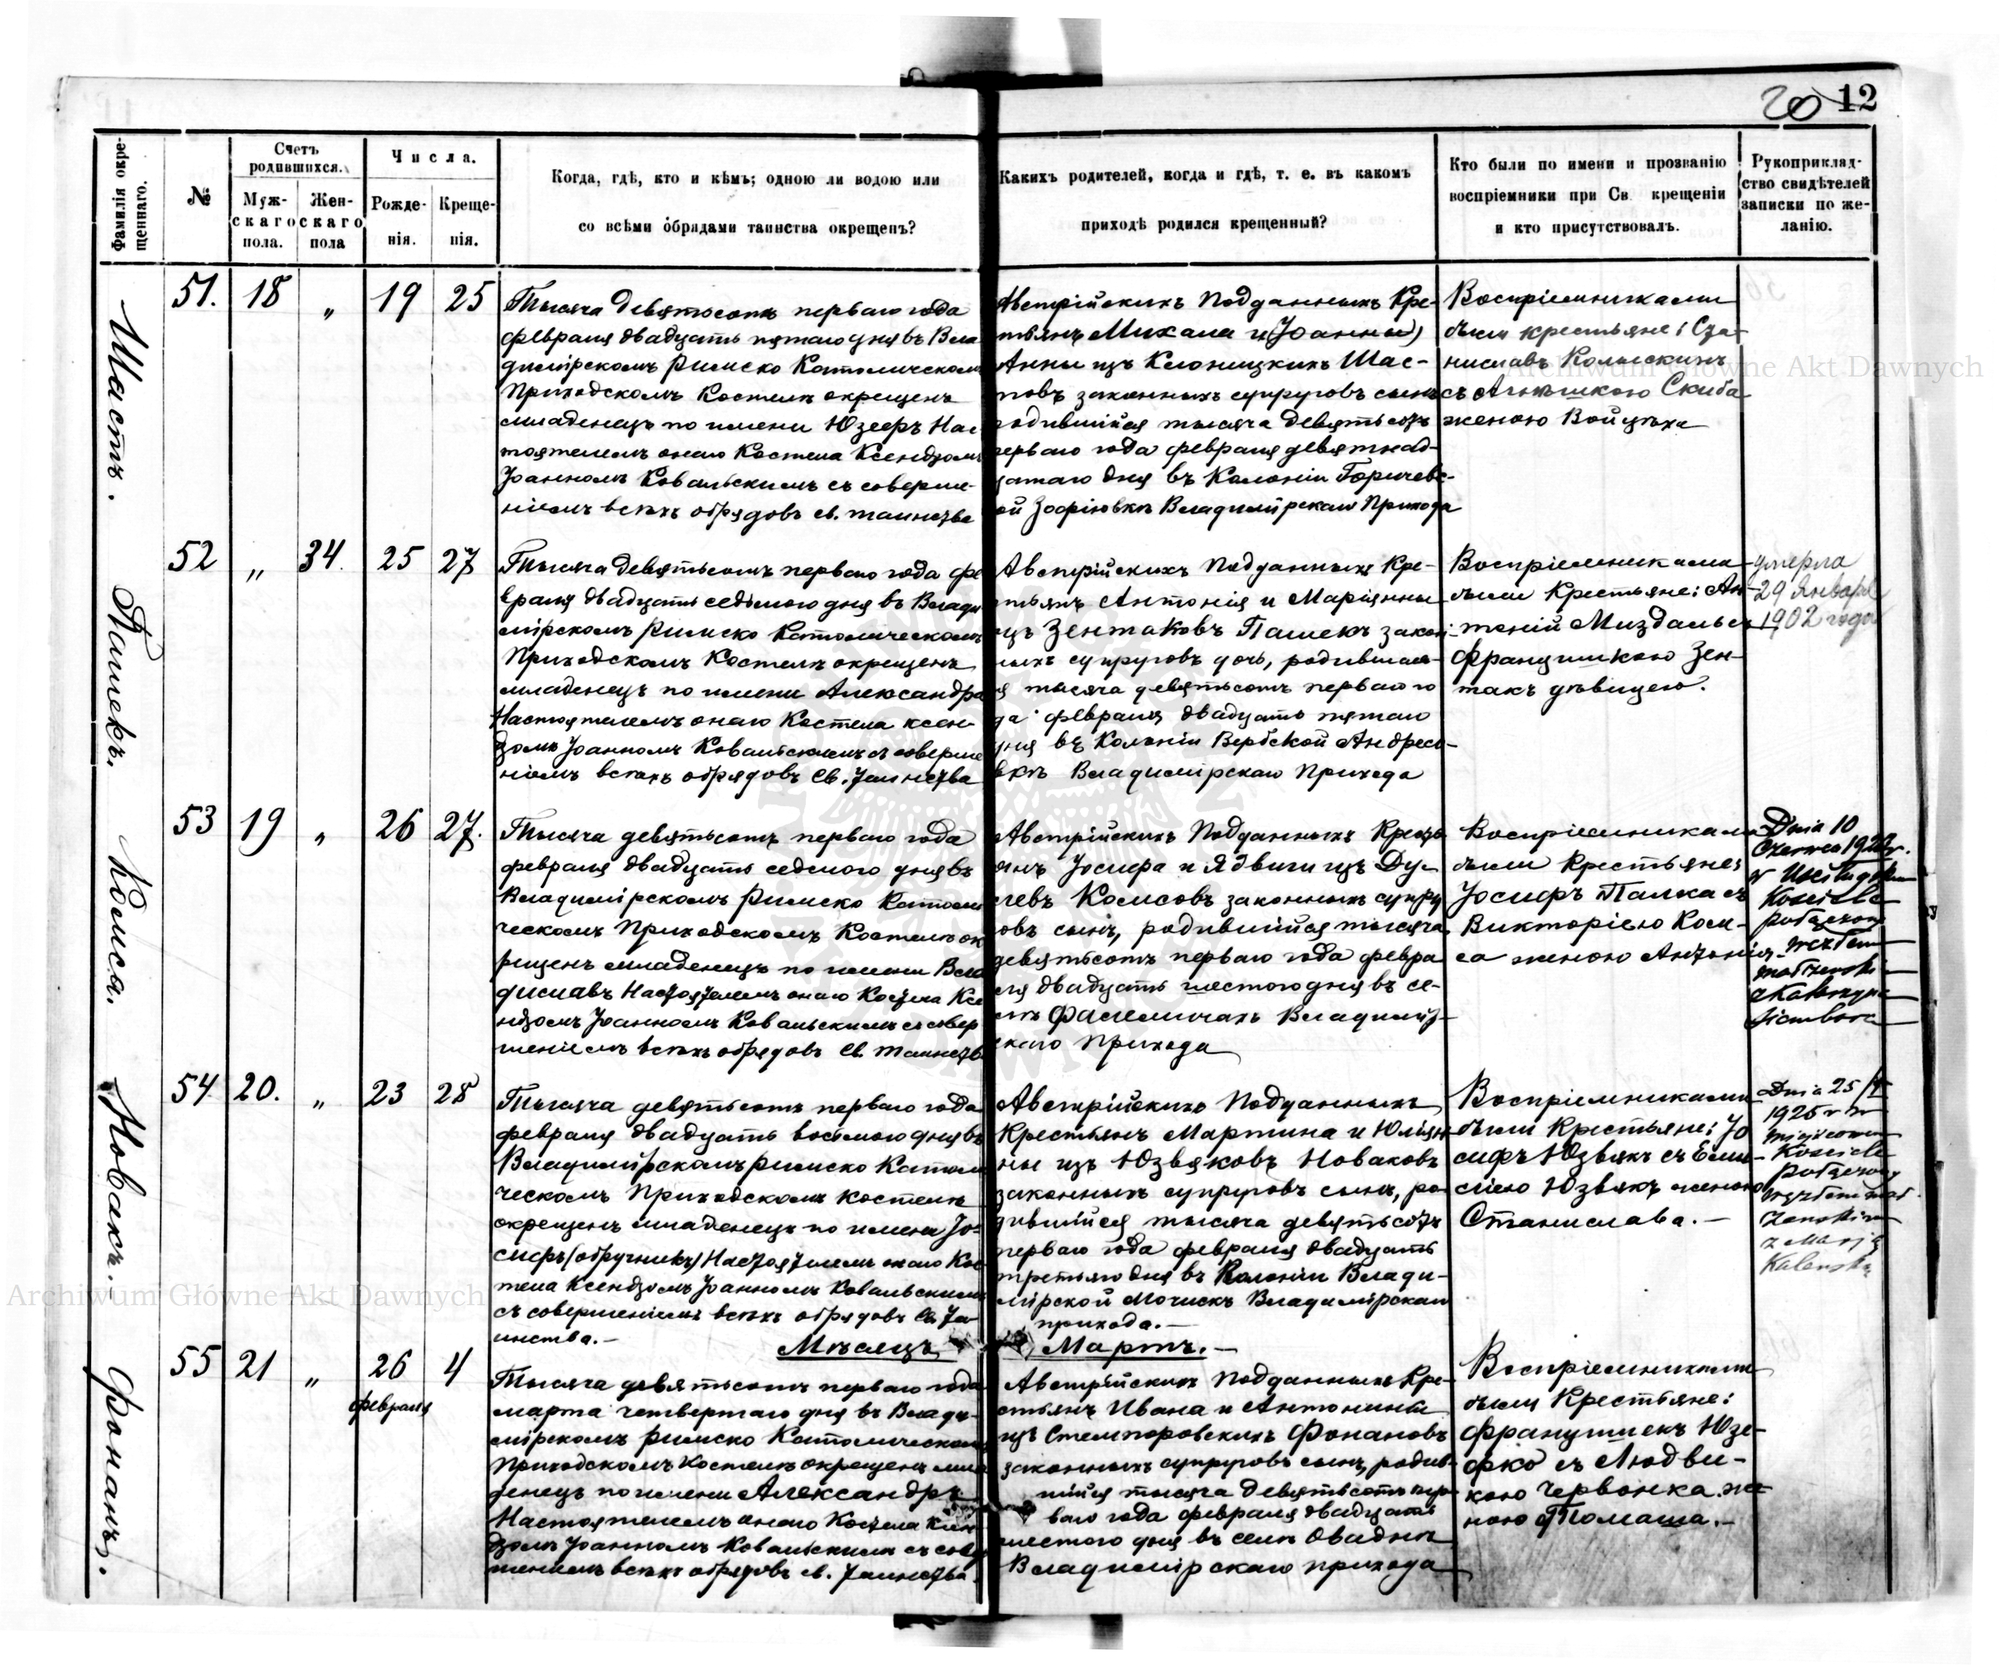 20 12
Фамилія окре-
щеннаго.
№
Счетъ
родившихся.
Муж-
скаго
пола.
Жен-
скаго
пола
Числа.
Рожде-
нія.
Креще-
нія.
Когда, гдѣ, кто и кѣмъ; одною ли водою или
со всѣми обрядами таинства окрещенъ?
Какихъ родителей, когда и гдѣ, т. е. въ какомъ
приходѣ родился крещенный?
Кто были по имени и прозванію
воспріемники при Св. крещеніи
и кто присутствовалъ.
Рукоприклад-
ство свидѣтелей
записки по же-
ланію.
Шастъ.
51. 18 „ 19 25
Тысяча девятьсотъ перваго года
февраля двадцать пятаго дня въ Вла-
димірскомъ Римско Католическомъ
Приходскомъ Костелѣ окрещенъ
младенецъ по имени Юзефъ Нас-
тоятелемъ онаго Костела Ксендзомъ
Іоанномъ Ковальскимъ съ соверше-
ніемъ всѣхъ обрядовъ св. таинства
Австрійскихъ Подданныхъ Кре-
стьянъ Михала и (Іоанны)
Анны изъ Клоницкихъ Шас-
товъ законныхъ супруговъ сынъ
родившійся тысяча девятьсотъ
перваго года февраля девятнад-
цатаго дня въ Колоніи Горичевс-
кой Зофіювкѣ Владимірскаго Прихода
Воспріемниками
были крестьяне: Ста-
ниславъ
съ Агнѣшкою Скиба
женою Войцѣха
Пашекъ.
52 „ 34. 25 27
Тысяча девятьсотъ перваго года фе-
враля двадцать седьмого дня въ Влади-
мірскомъ Римско Католическомъ
Приходскомъ Костелѣ окрещенъ
младенецъ по имени Александра
Настоятелемъ онаго Костела ксен-
дзомъ Іоанномъ Ковальскимъ съ соверше-
ніемъ всѣхъ обрядовъ Св. Таинства
Австрійскихъ Подданныхъ Кре-
стьянъ Антонія и Маріянны
изъ Зентаковъ Пашекъ закон-
ныхъ супруговъ дочь, родившая-
ся тысяча девятьсотъ перваго го-
да февраля двадцать пятаго
дня въ Колоніи Вербской Андресо-
вкѣ Владимірскаго Прихода
Воспріемниками
были Крестьяне: Ан-
тоній Миздальсъ
Францишкою Зен-
такъ дѣвицею.
умерла
29 Января
1902 года
Комса.
53 19 „ 26 27.
Тысяча девятьсотъ перваго года
февраля двадцать седмого дня въ
Владимірскомъ Римско Католи-
ческомъ Приходскомъ Костелѣ ок-
рещенъ младенецъ по имени Вла-
диславъ Настоятелемъ онаго Костела Ксе-
ндзомъ Іоанномъ Ковальскимъ съ совер-
шеніемъ всѣхъ обрядовъ Св. таинства
Австрійскихъ Подданныхъ Кресть-
янъ Іосифа и Ядвиги изъ Ду-
левъ Комсовъ законныхъ супру-
говъ сынъ, родившійся тысяча
девятьсотъ перваго года февра-
ля двадцать шестого дня въ се-
лѣ Фалемичахъ Владимір-
скаго Прихода
Воспріемниками
были Крестьяне:
Іосифъ Палка съ
Викторією Ком-
са женою Антонія
Dnia 10
Czerwca
w
Kościele
połączony
węzłem
małżeński
z Katarzyną
Новакъ.
54 20. „ 23 28
Тысяча девятьсотъ перваго года
февраля двадцать восьмого дня въ
Владимірскомъ Римско Католи-
ческомъ Приходскомъ костелѣ
окрещенъ младенецъ по имени Іо-
сифъ (обручникъ) Настоятелемъ онаго Кос-
тела Ксендзомъ Іоанномъ Ковальскимъ
съ совершеніемъ всѣхъ обрядовъ Св. Та-
инства.-
Австрійскихъ Подданныхъ
Крестьянъ Мартина и Юліян-
ны изъ Юзвяковъ Новаковъ
законныхъ супруговъ сынъ, ро-
дившійся тысяча девятьсотъ
перваго года февраля двадцать
третьяго дня въ Колоніи Влади-
мірской Мочискъ Владимірскаго
прихода.-
Воспріемниками
были Крестьяне: Іо-
сифъ Юзвякъ съ Еми-
лією Юзвякъ женою
Станислава.-
Dnia 25/
1926 r w
miejscowym
Kościele
połączony
węzłem mał-
żeńskim
z Marią
Мѣсяцъ Мартъ.-
Фонанъ.
55 21 „ 26 4
февраля
Тысяча девятьсотъ перваго года
марта четвертаго дня въ Влади-
мірскомъ Римско Католическомъ
Приходскомъ Костелѣ окрещенъ мла-
денецъ по имени Александръ
Настоятелемъ онаго Костела ксен-
дзомъ Іоанномъ Ковальскимъ съ совер-
шеніемъ всѣхъ обрядовъ св. Таинства.
Австрійскихъ Подданныхъ Кре-
стьянъ Ивана и Антонины
изъ Стемпоровскихъ Фонановъ
законныхъ супруговъ сынъ, родив-
шійся тысяча девятьсотъ пер-
ваго года февраля двадцать
шестого дня въ селѣ Овадно
Владимірскаго прихода
Воспріемниками
были Крестьяне:
Францишекъ Юзе-
фко съ Людви-
кою Червонка же-
ною Томаша.-
Archiwum Główne Akt Dawnych
Archiwum Główne Akt Dawnych